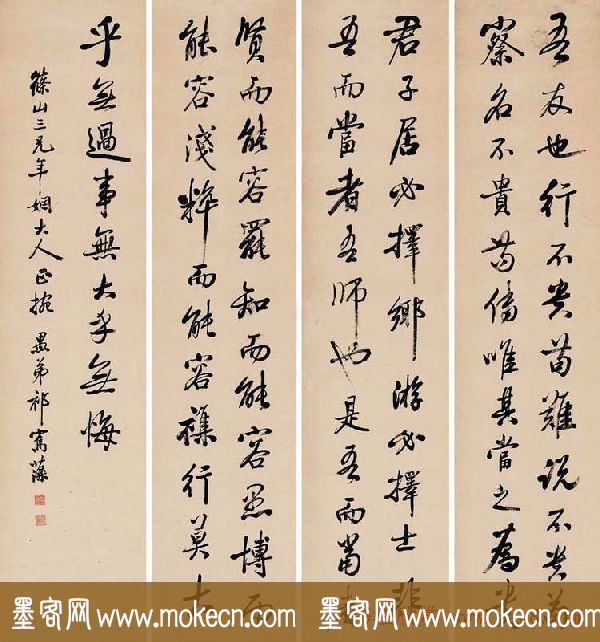 吾友也行不貴苟難說不貴苟
察名不貴苟傳唯其當之為貴
君子居必擇鄉游必擇士非
吾而當者吾師也是吾而當者
賢而能容罷知而能容愚博而
能容淺粹而能容雜行莫大
乎無過事無大乎無悔
篠山三兄年姻大人正腕 愚弟祁寯藻
墨客网 www.mokecn.com 墨客网 www.mokecn.com